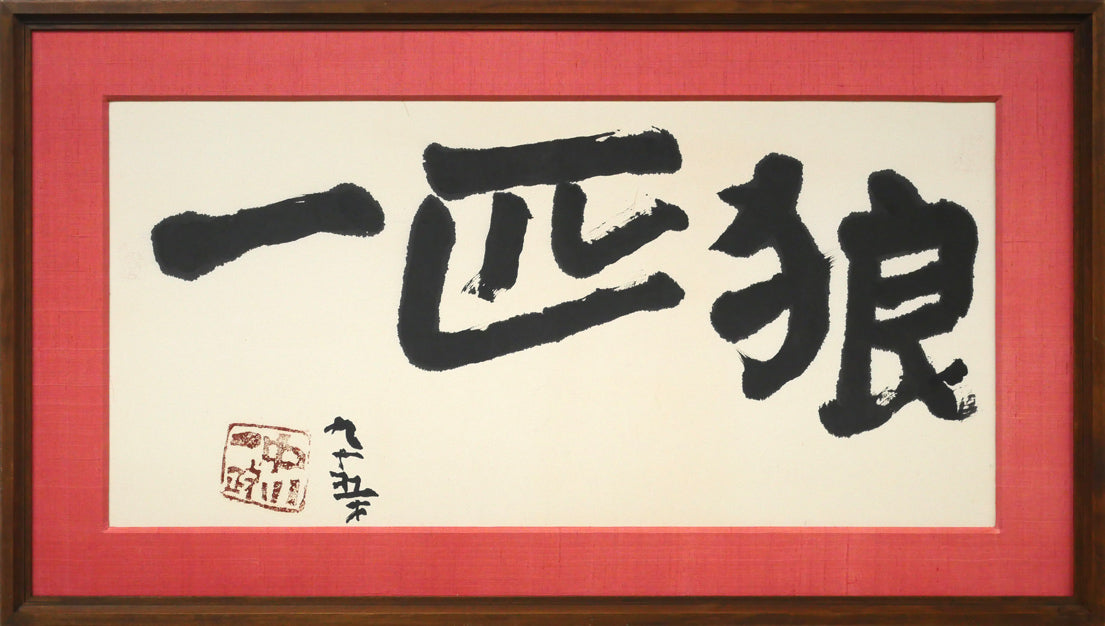 一匹狼
九十五才
中川
一政